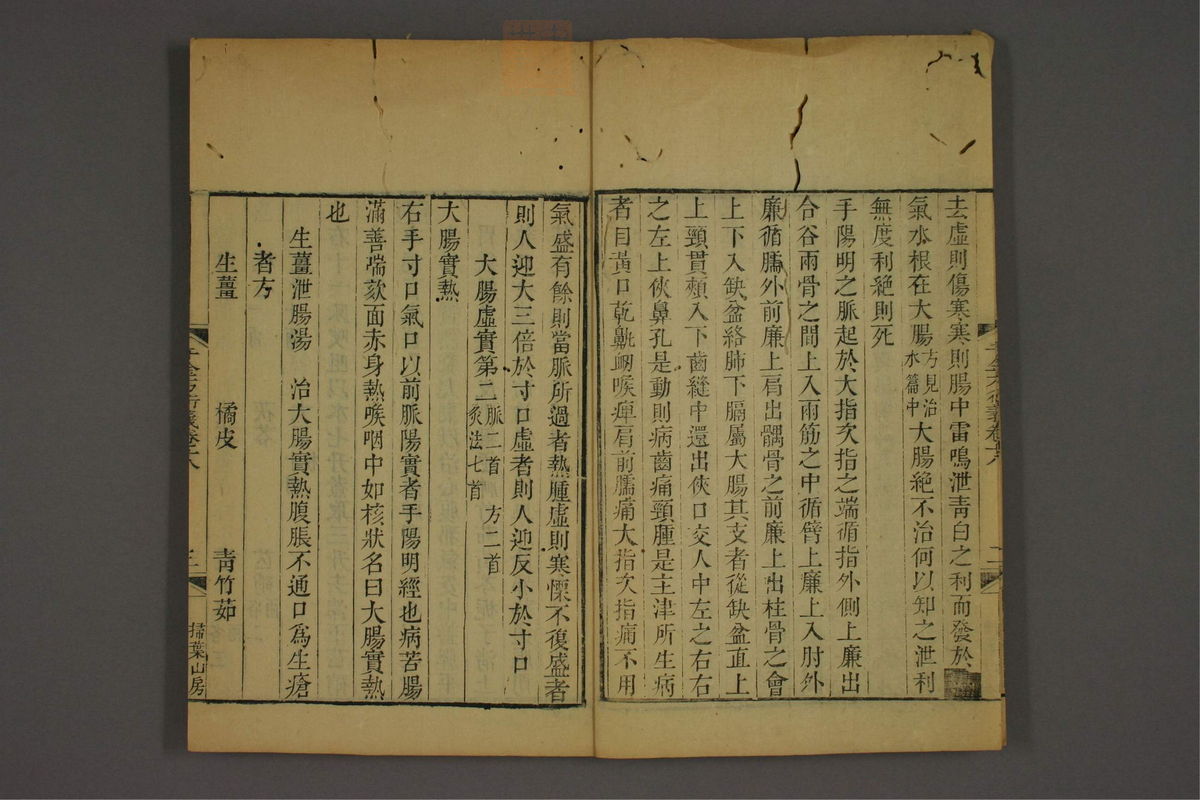 去虛則傷寒寒則腸中雷鳴泄靑白之利而發於
氣水根在大腸方見治水篇中大腸絕不治何以知之泄利
無度利絕則死
手陽明之脈起於大指次指之端循指外側上廉出
合谷兩骨之間上入兩筋之中循臂上廉上入肘外
廉循臑外前廉上肩出髃骨之前廉上出柱骨之會
上下入缺盆絡肺下膈屬大腸其支者從缺盆直上
上頸貫頰入下齒縫中還出俠口交人中左之右右
之左上俠鼻孔是動則病齒痛頸腫是主津所生病
者目黃口乾鼽衂喉痺肩前臑痛大指次指痛不用
千金方衍義卷十八
二
氣盛有餘則當脈所過者熱腫虛則寒慄不復盛者
則人迎大三倍於寸口虛者則人迎反小於寸口
大腸虛實第二脈二首 方二首 灸法七首
大腸實熱
右手寸口氣口以前脈陽實者手陽明經也病苦腸
滿善喘欬面赤身熱喉咽中如核狀名曰大腸實熱
也
生薑泄腸湯 治大腸實熱腹脹不通口爲生瘡
者方
生薑 橘皮 靑竹茹
千金方衍義卷十八
三
掃葉山房